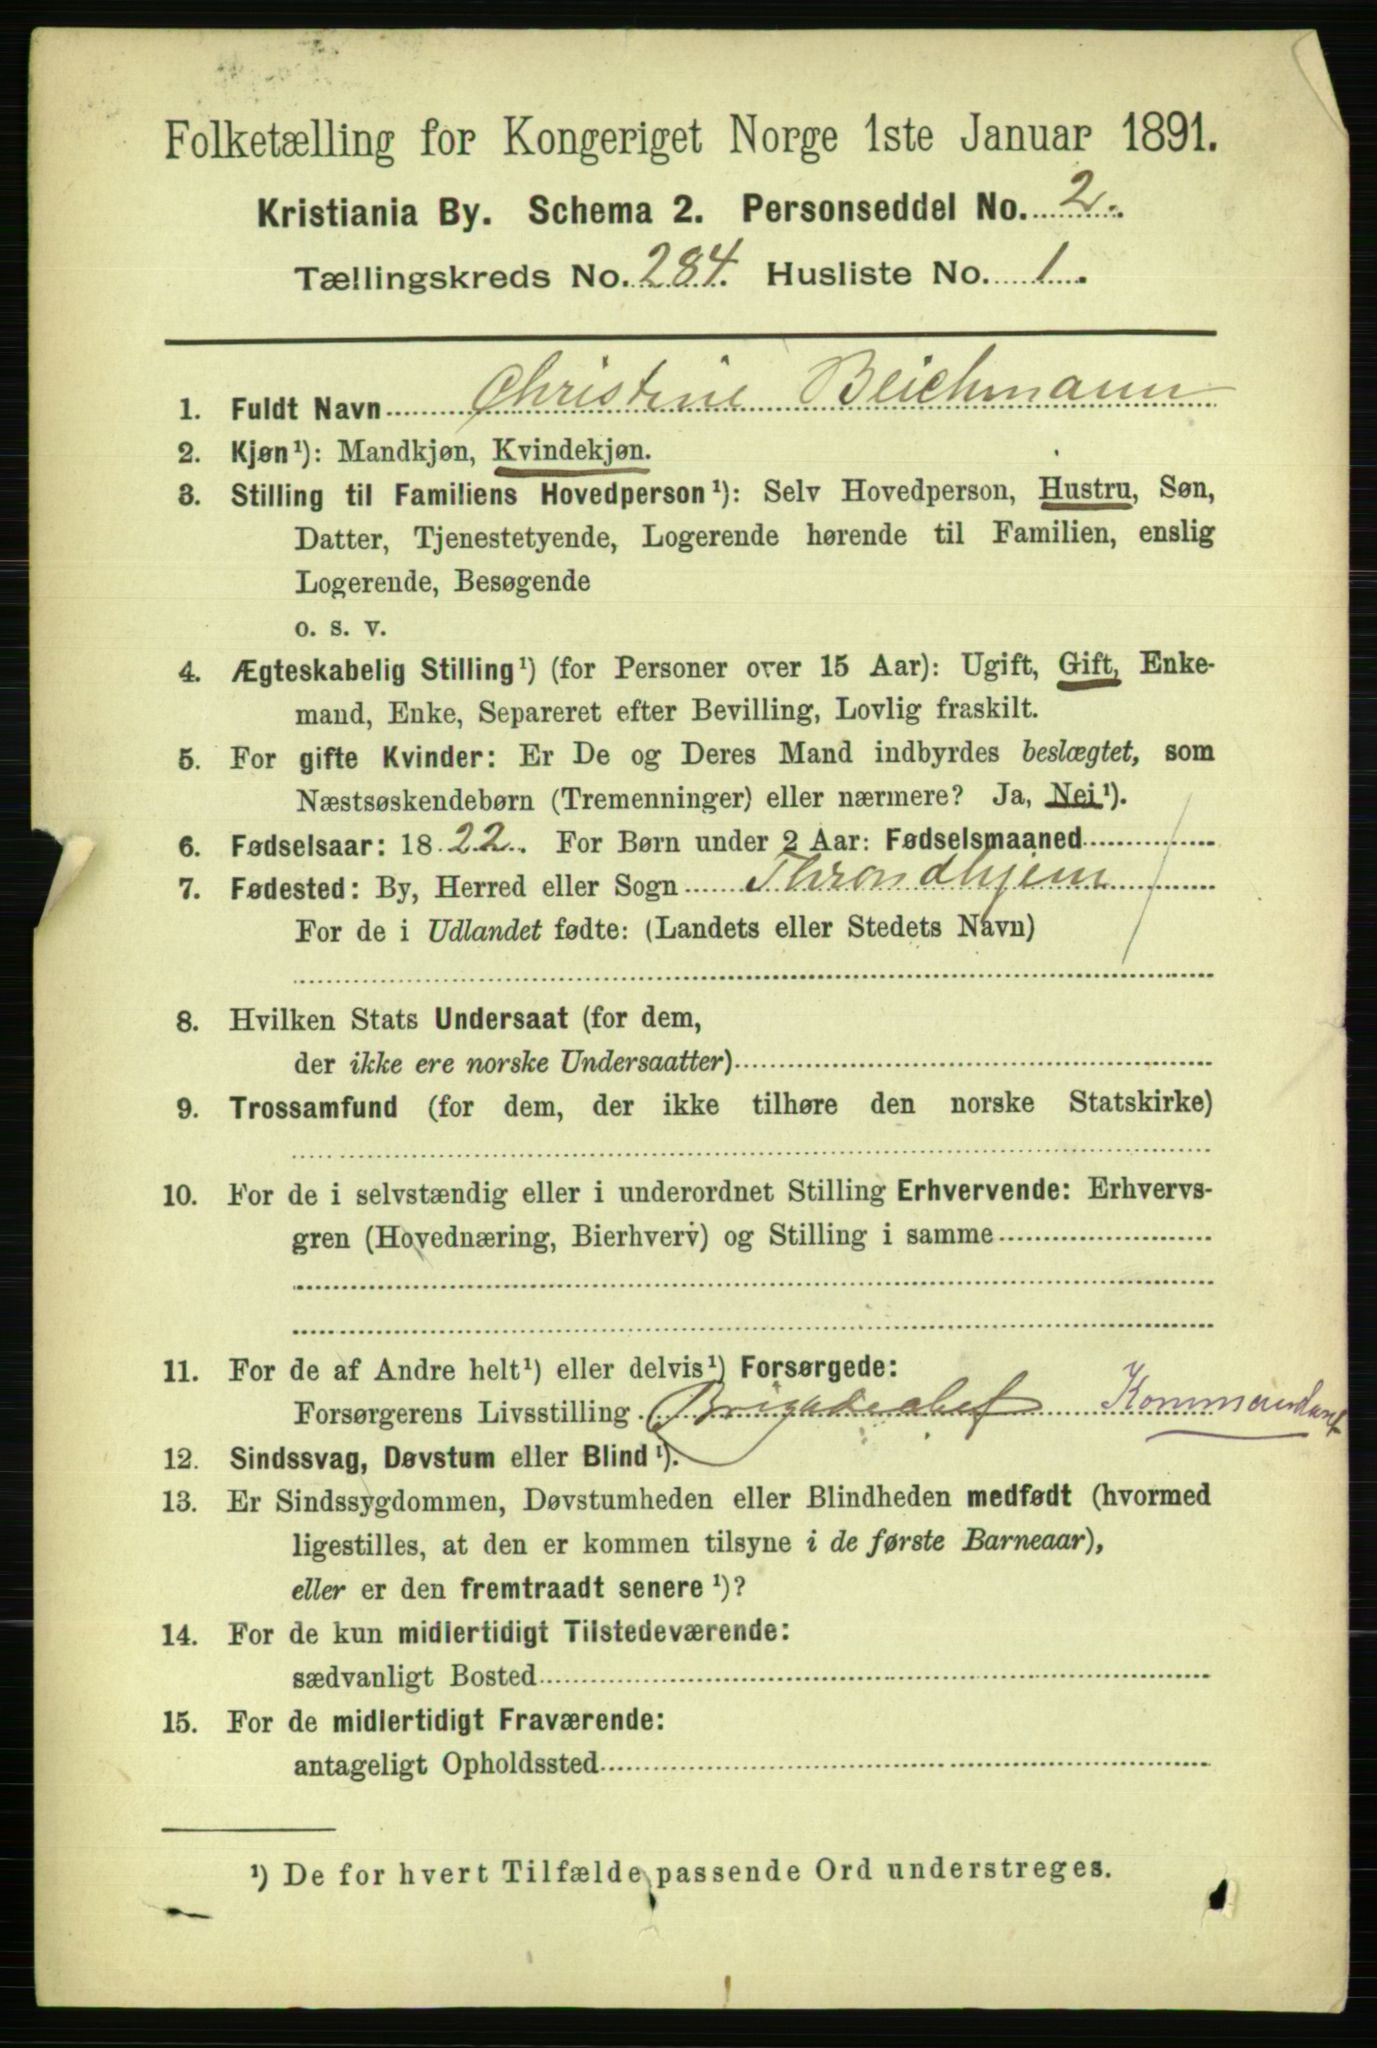 Folketælling for Kongeriget Norge 1ste Januar 1891.
Kristiania By. Schema 2. Personseddel No. 2.
Tællingskreds No. 284. Husliste No. 1.
1. Fuldt Navn Christine Beichmann
2. Kjøn¹): Mandkjøn, Kvindekjøn.
3. Stilling til Familiens Hovedperson¹): Selv Hovedperson, Hustru, Søn,
Datter, Tjenestetyende, Logerende hørende til Familien, enslig
Logerende, Besøgende
o. s. v.
4. Ægteskabelig Stilling¹) (for Personer over 15 Aar): Ugift, Gift, Enke-
mand, Enke, Separeret efter Bevilling, Lovlig fraskilt.
5. For gifte Kvinder: Er De og Deres Mand indbyrdes beslægtet, som
Næstsøskendebørn (Tremenninger) eller nærmere? Ja, Nei¹).
6. Fødselsaar: 1822. For Børn under 2 Aar: Fødselsmaaned
7. Fødested: By, Herred eller Sogn Throndhjem
For de i Udlandet fødte: (Landets eller Stedets Navn)
8. Hvilken Stats Undersaat (for dem,
der ikke ere norske Undersaatter)
9. Trossamfund (for dem, der ikke tilhøre den norske Statskirke)
10. For de i selvstændig eller i underordnet Stilling Erhvervende: Erhvervs-
gren (Hovednæring, Bierhverv) og Stilling i samme
11. For de af Andre helt¹) eller delvis¹) Forsørgede:
Forsørgerens Livsstilling Brigadechef Kommandant
12. Sindssvag, Døvstum eller Blind¹).
13. Er Sindssygdommen, Døvstumheden eller Blindheden medfødt (hvormed
ligestilles, at den er kommen tilsyne i de første Barneaar),
eller er den fremtraadt senere¹)?
14. For de kun midlertidigt Tilstedeværende:
sædvanligt Bosted
15. For de midlertidigt Fraværende:
antageligt Opholdssted
¹) De for hvert Tilfælde passende Ord understreges.